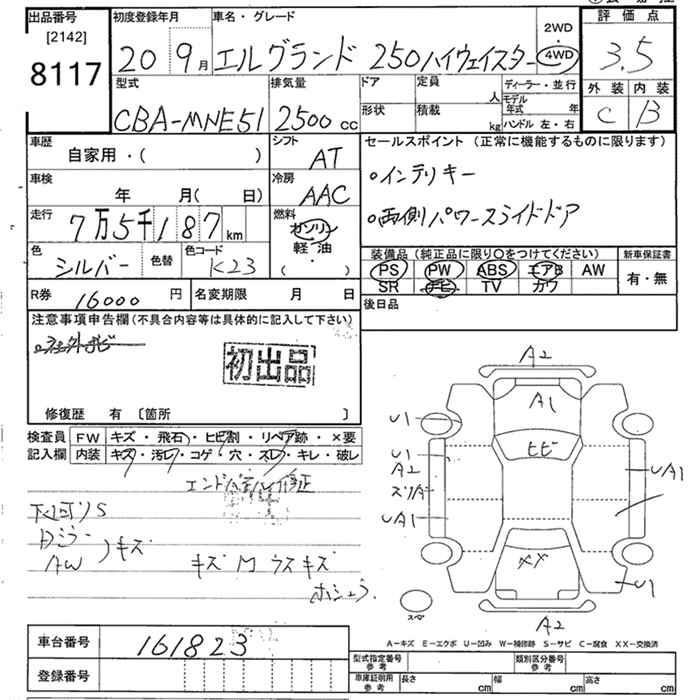 出品番号 初度登録年月 車名・グレード 2WD 評価点
[2142] 8117 20 9月 エルグランド 250ハイウェイスター 4WD 3.5
型式 排気量 ドア 定員 人 ディーラー・並行 外装 内装
CBA-MNE51 2500cc 形状 積載 kg モデル年式 年 C B
ハンドル 左・右
車歴 自家用・( ) シフト AT セールスポイント (正常に機能するものに限ります)
車検 年 月( 日) 冷房 AAC 。インテリキー
走行 7万5千187km 燃料 ガソリン 軽・油 ・ ( ) 。両側パワースライドドア
色 シルバー 色替 色コード K23 装備品(純正品に限り〇をつけてください) 新車保証書
PS PW ABS エアB AW 有・無
SR ナビ TV カワ
R券 16000円 名変期限 月 日 後日品
注意事項申告欄(不具合内容等は具体的に記入して下さい)
初出品
修復歴 有 [箇所 ]
検査員 FW キズ・飛石・ヒビ割・リペア跡・×要
記入欄 内装 キズ・汚レ・コゲ・穴・スレ・キレ・破レ
下回りS
AW キズ
キズ M ウスキズ
A2
A1
U1
ヒビ
U1
A2
UA1
UA1
XX
U1
A2
A-キズ E-エクボ U-凹み W-補修跡 S-サビ C-腐食 XX-交換済
車台番号 161823
登録番号
型式指定番号 参考 類別区分番号 参考
車庫証明用 参考 長さ cm 幅 cm 高さ cm